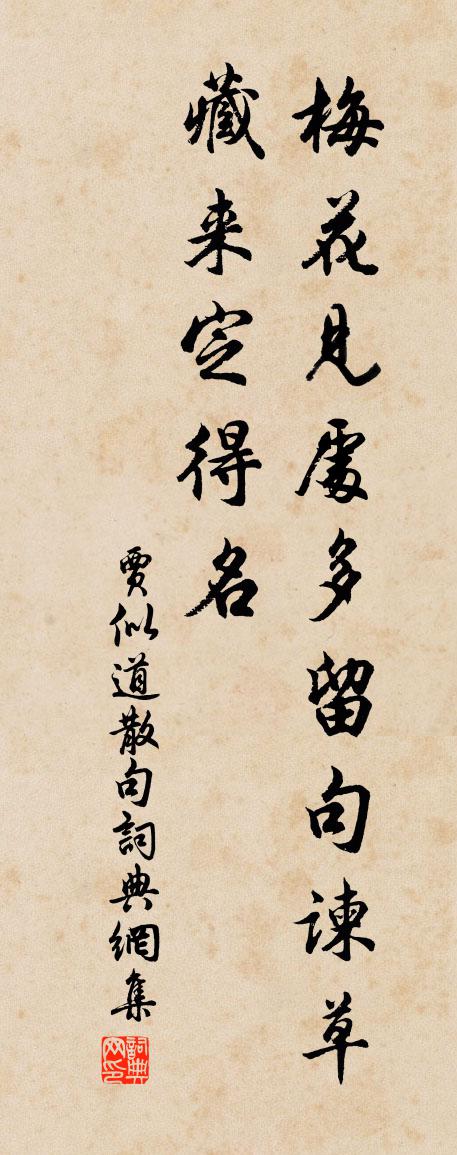 梅花見處多留句諫草
藏来定得名
賈似道散句詞典網集
詞典网印